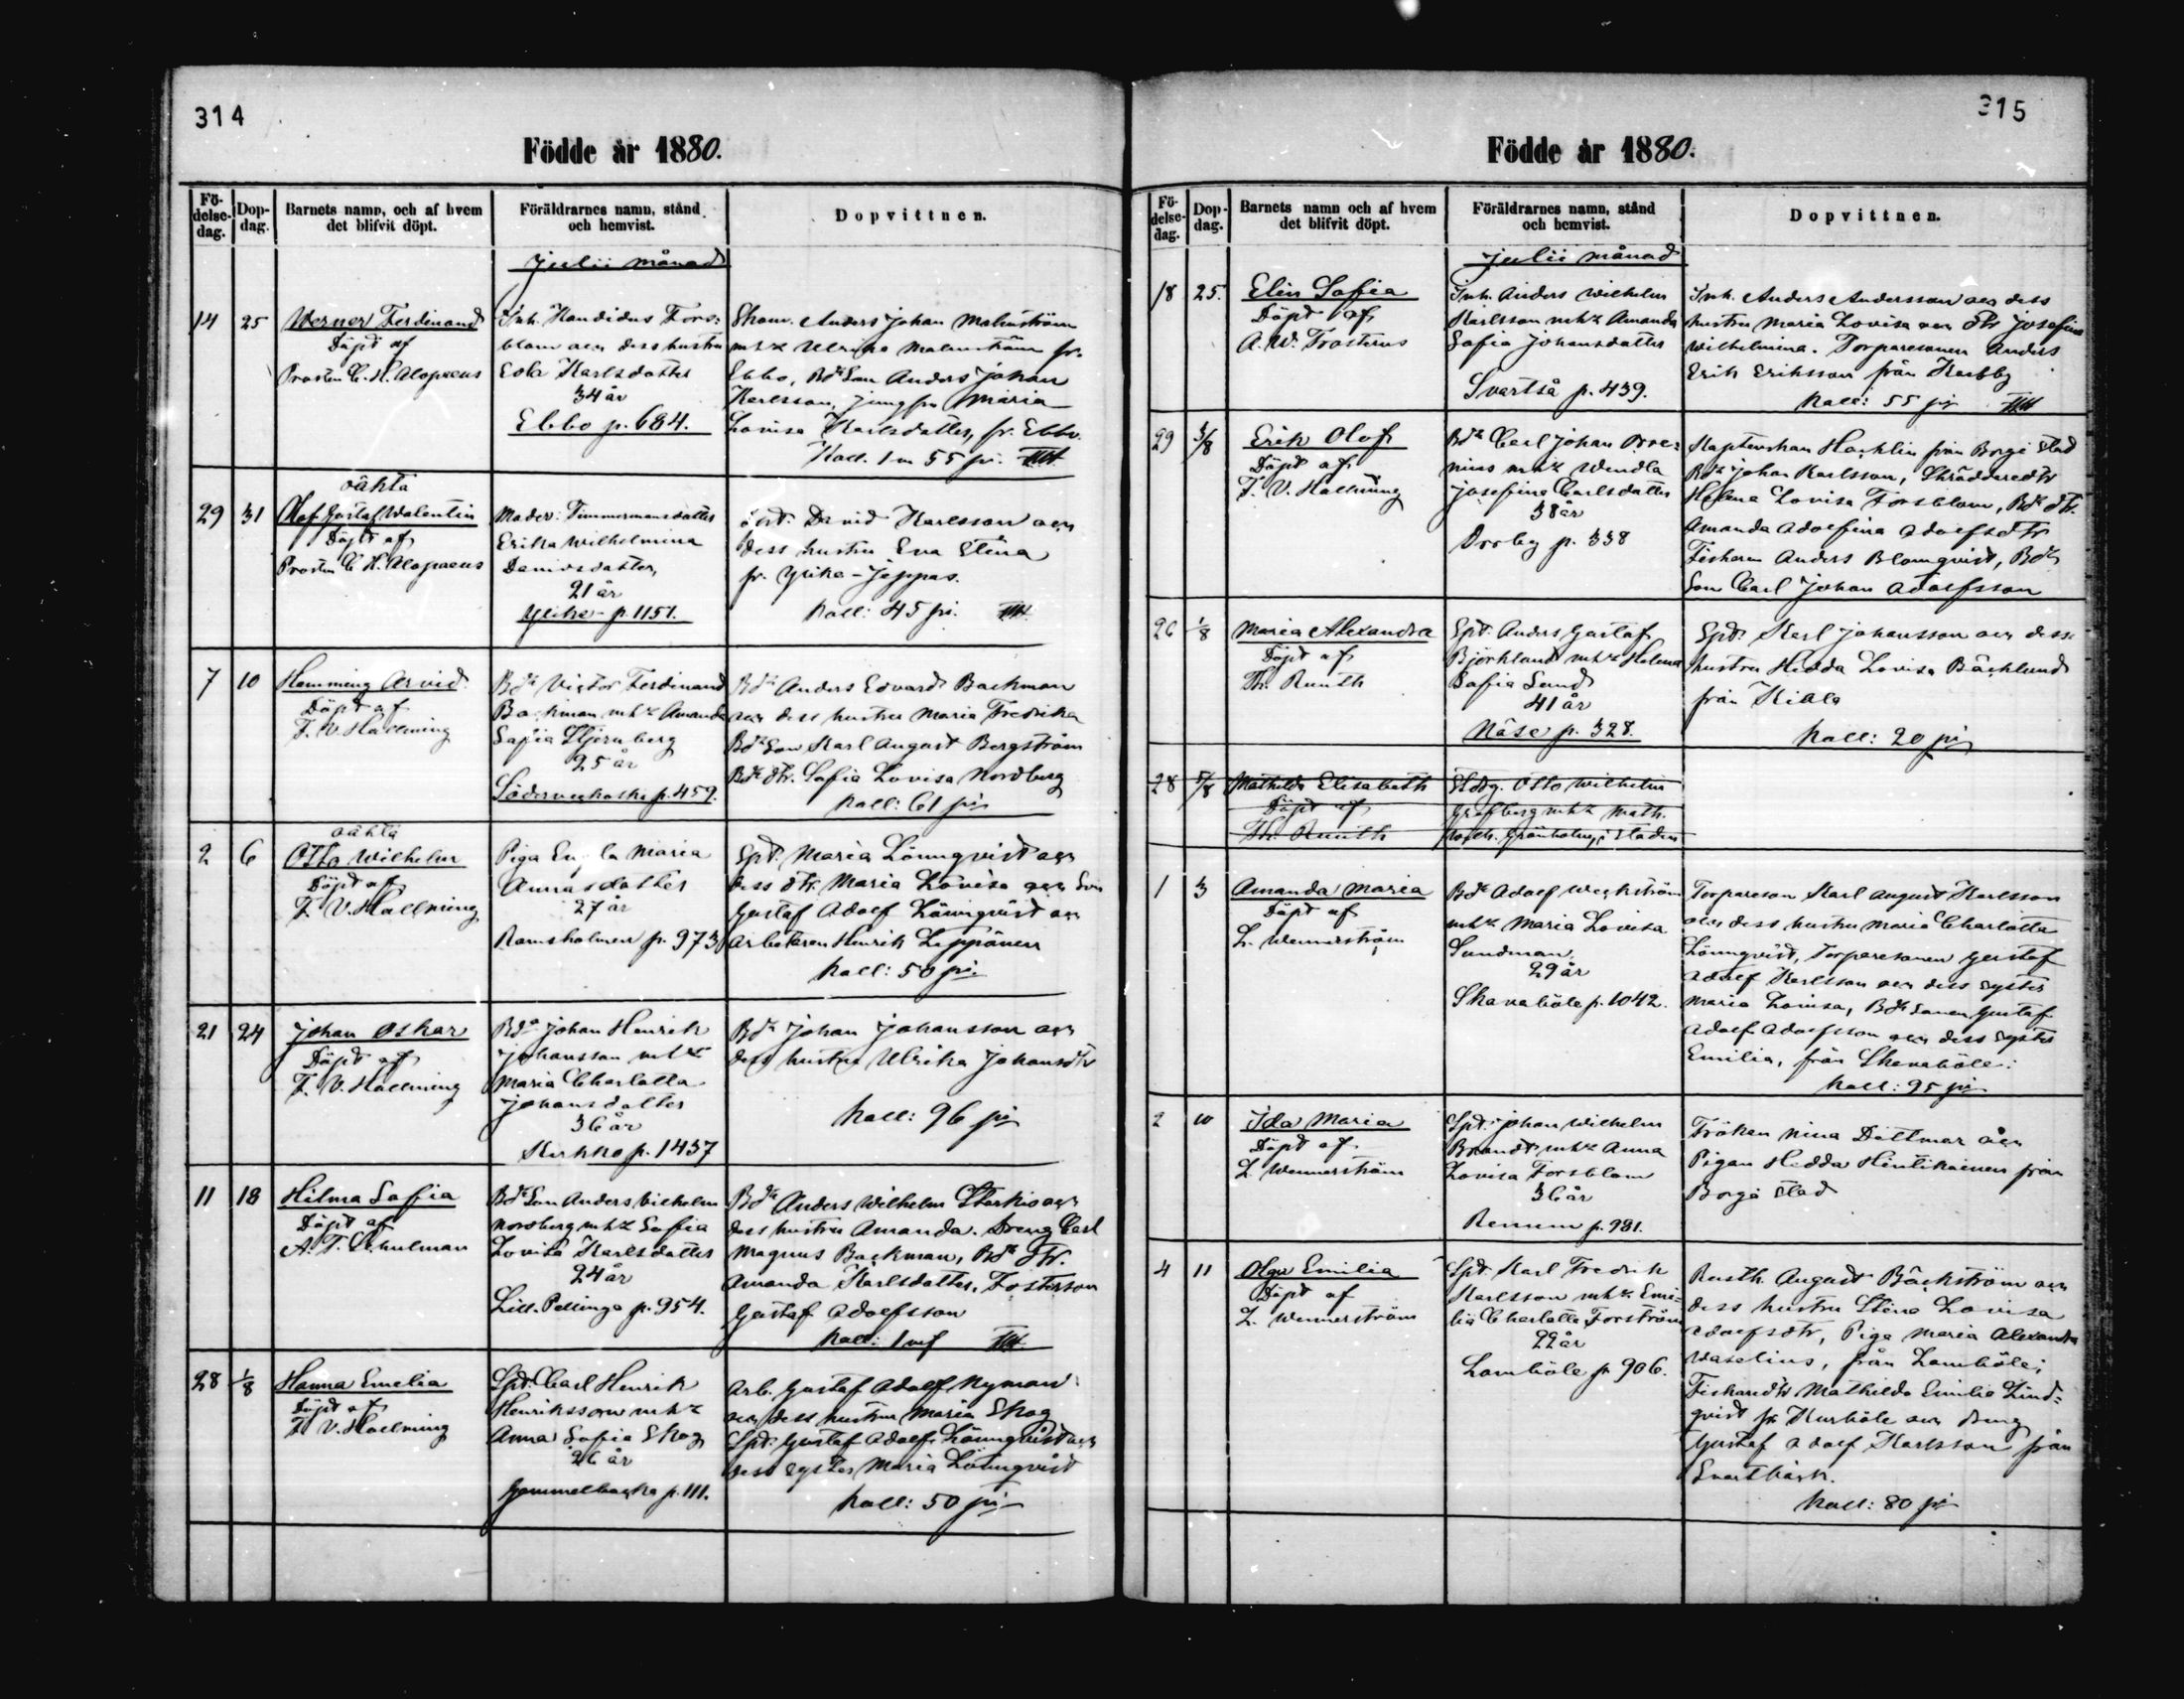 314
Födde år 1880.
Fö-
delse-
dag.
Dop-
dag.
Barnets namn, och af hvem
det blifvit döpt.
Föräldrarnes namn, stånd
och hemvist.
Dopvittnen.
Julii månad
14 25
Werner Ferdinand
Döpt af
Prosten C. H. Alopaeus
Inh. Kandidus Fors-
blom och dess hustru
Eva Karlsdotter
34 år
Ebbo p. 684.
Anders Johan Malmström
mhk Ulrika Malmström fr.
Ebbo, Bds Son Anders Johan
Karlsson, Jungfru Maria
Lovisa Karlsdotter, fr. Ebbo.
Koll. 1 m 55 pi.
29 31
oäkta
Olof Gustaf Walentin
Döpt af
Prosten C. H. Alopaeus
Moder: Timmermansdotter
Erika Wilhelmina
Davidsdotter,
21 år
p. 1151.
David Karlsson och
dess hustru Eva Stina
fr. Yrike-Jeppas.
Koll: 45 pi.
7 10
Hemming Arvid
Döpt af
F. V. Hallming
Bdn Victor Ferdinand
Backman mhk Amanda
Sofia Stjernberg
25 år
Söderveckoski p. 459.
Bdn Anders Edvard Backman
och dess hustru Maria Fredrika
Bds Son Karl August Bergström
Bds dtr. Sofia Lovisa Nordberg
Koll: 61 pi
2 6
oäkta
Otto Wilhelm
Döpt af
F. V. Hallming
Piga Engla Maria
Annasdotter
27 år
Ramsholmen p. 973
Spt. Maria Lönnqvist och
dess dtr. Maria Lovisa och Son
Gustaf Adolf Lönnqvist och
Arbetaren Henrik Leppänen
Koll: 50 pi.
21 24
Johan Oskar
Döpt af
F. V. Hallming
Bdn Johan Henrik
Johansson mhk
Maria Charlotta
Johansdotter
36 år
Kirkko p. 1437
Bdn Johan Johansson och
dess hustru Ulrika Johansdtr
Koll: 96 pi
11 18
Hilma Sofia
Döpt af
A. T. Schulman
Bds Son Anders Wilhelm
Nordberg mhk Sofia
Lovisa Karlsdotter
24 år
Lill. Pellinge p. 954.
Bdn Anders Wilhelm Starkis och
dess hustru Amanda. Dreng Carl
Magnus Backman, Bds dtr.
Amanda Karlsdotter, Fosterson
Gustaf Adolfsson
Koll: 1 mf
28 1/8
Hanna Emelia
Döpt af
F. V. Hallming
Spt. Carl Henrik
Henriksson mhk
Anna Sofia Skog
26 år
Gammelbacka p. 111.
Arb. Gustaf Adolf Nyman
och dess hustru Maria Skog
Spt. Gustaf Adolf Lönnqvist och
dess syster Maria Lönnqvist
Koll: 50 pi
315
Födde år 1880.
Fö-
delse-
dag.
Dop-
dag.
Barnets namn och af hvem
det blifvit döpt.
Föräldrarnes namn, stånd
och hemvist.
Dopvittnen.
Julii månad
18 25.
Elin Sofia
Döpt af
A. W. Trosterus
Inh. Anders Wilhelm
Karlsson mhk Amanda
Sofia Johansdotter
Svartså p. 439.
Inh. Anders Andersson och dess
hustru Maria Lovisa och dtr Josefina
Wilhelmina. Torparesonen Anders
Erik Eriksson från Kerkby
Koll: 55 pi
29 3/8
Erik Olof
Döpt af
F. V. Hallming
Bdn Carl Johan
mhk Wendla
Josefina Carlsdotter
38 år
Orrby p. 338
från Borgå Stad
Bdn Johan Karlsson, Skräddaredtr
Helena Lovisa Forsblom, Bds dtr.
Amanda Adolfina Adolfsdtr
Fiskaren Anders Blomqvist, Bds
Son Carl Johan Adolfsson
26 1/8
Maria Alexandra
Döpt af
Th. Runth
Spt. Anders Gustaf
Björklund mhk Helena
Sofia Lund
41 år
Näse p. 328.
Spt. Karl Johansson och dess
hustru Hedda Lovisa Bäcklund
från Kiala
Koll: 20 pi
28 5/8
Mathilda Elisabeth
Döpt af
Th. Runth
Otto Wilhelm
mhk Math.
Grönholm, i Staden
1 3
Amanda Maria
Döpt af
L. Wennerström
Bdn Adolf Weckström
mhk Maria Lovisa
Sundman
29 år
Skavaböle p. 1042.
Torpareson Karl August Karlsson
och dess hustru Maria Charlotta
Lönnqvist, Torparesonen Gustaf
Adolf Karlsson och dess syster
Maria Lovisa, Bds Sonen Gustaf
Adolf Adolfsson och dess syster
Emilia, från Skavaböle:
Koll: 95 pi
2 10
Ida Maria
Döpt af
L. Wennerström
Spt. Johan Wilhelm
Brandt mhk Anna
Lovisa Forsblom
36 år
Renum p. 981.
Fröken Nina Dittmar och
Pigan Hedda Hintikainen från
Borgå Stad
4 11
Olga Emilia
Döpt af
L. Wennerström
Spt. Karl Fredrik
Karlsson mhk Emi-
lia Charlotta Forström
22 år
Lomböle p. 906.
Rusth. August Bäckström och
dess hustru Stina Lovisa
Adolfsdtr, Piga Maria Alexandra
Waselius, från Lomböle;
Fiskaredtr Mathilda Emilia Lind-
qvist fr. Kurböle och dreng
Gustaf Adolf Karlsson från
Svartbäck.
Koll: 80 pi